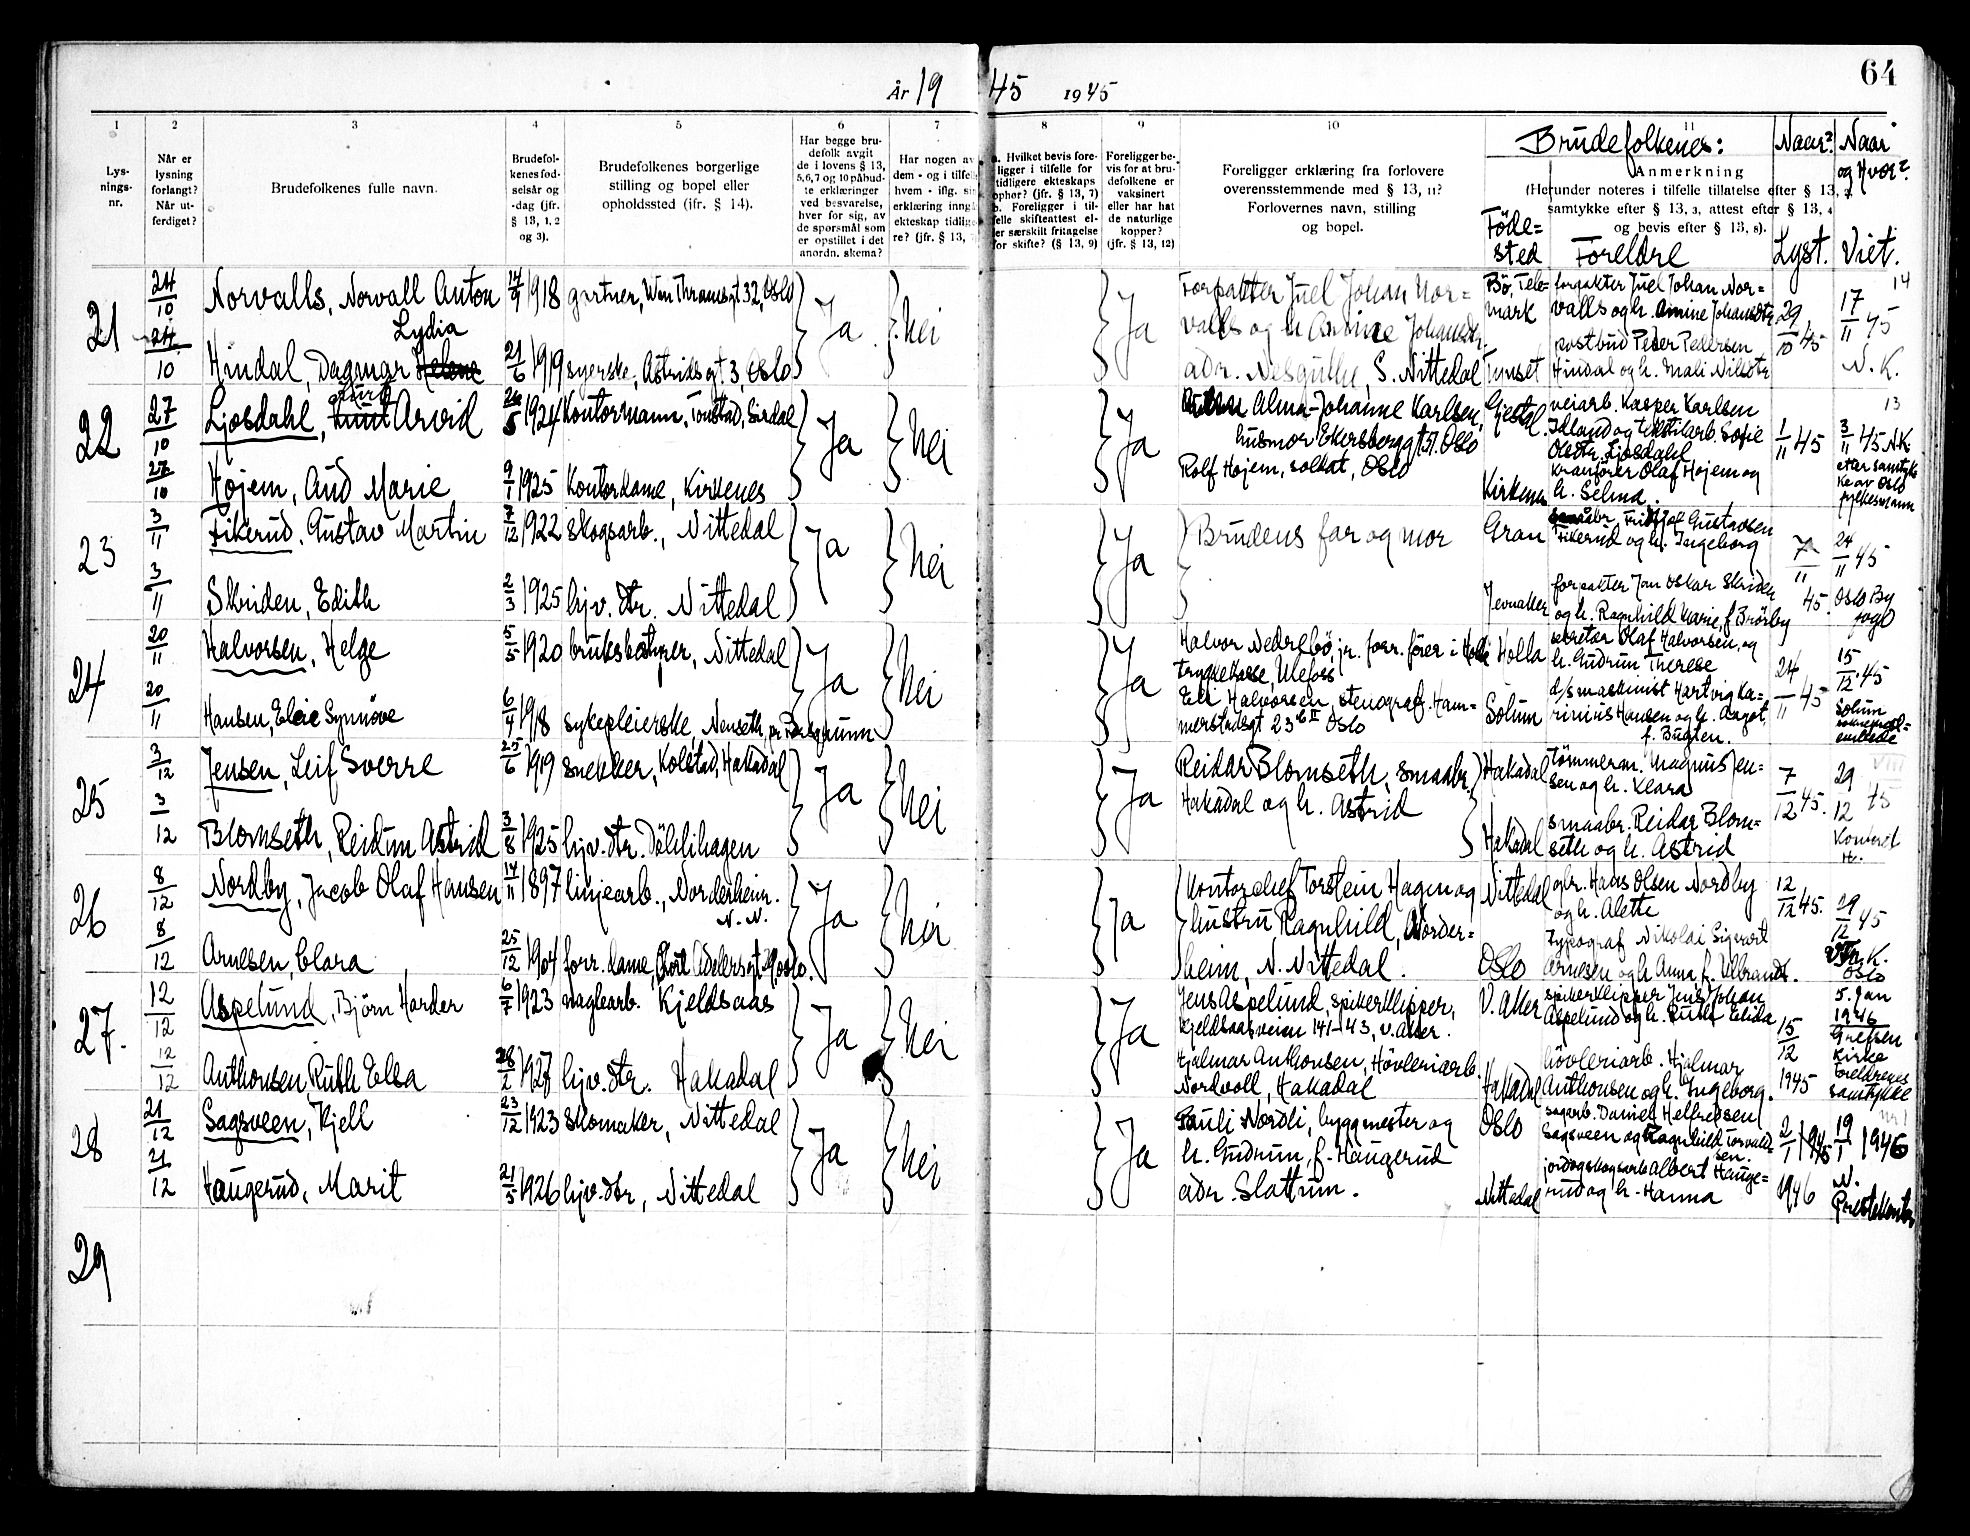 64
År 19 45 1945
1 2 3 4 5 6 7 8 9 10 11
Lys-
nings-
nr.
Når er
lysning
forlangt?
Når ut-
ferdiget?
Brudefolkenes fulle navn.
Brudefol-
kenes fød-
selsår og
-dag (jfr.
§ 13, 1, 2
og 3).
Brudefolkenes borgerlige
stilling og bopel eller
opholdssted (ifr. § 14).
Har begge bru-
defolk avgit
de i lovens § 13,
5,6,7 og 10 påbud-
te erklæringer
ved besvarelse,
hver for sig, av
de spørsmål som
er opstillet i det
anordn. skema?
Har nogen av
dem - og i tilfelle
hvem - iflg. sin
erklæring inngå
ekteskap tidlige-
re? (jfr. § 13,
a. Hvilket bevis fore-
ligger i tilfelle for
tidligere ekteskaps
ophør? (jfr. § 13, 7)
b. Foreligger i til-
felle skifteattest el-
ler særskilt fritagelse
for skifte? (§ 13, 9)
Foreligger be-
vis for at bru-
defolkene er
vaksinert
eller har hat
de naturlige
kopper?
(jfr. § 13, 12)
Foreligger erklæring fra forlovere
overensstemmende med § 13, 11?
Forlovernes navn, stilling
og bopel.
Brudefolkenes:
Anmerkning
(Herunder noteres i tilfelle tillatelse efter § 13, 2
samtykke efter § 13, 3, attest efter § 13, 4
og bevis efter § 13, 8).
Föde-
sted
Foreldre
Naar?
Lyst.
Naar
og Hvor?
Viet.
21
24/10 Norvalls, Norvall Anton 14/9 1918 gartner, Wm Thranesgt 32, Oslo
Lydia
24/10 Hindal, Dagmar Helene 21/6 1919 syerske, Astridsgt. 3, Oslo
Ja Nei Ja
Forpakter Juel Johan Nor-
valls og h. Amine Johansdtr.
adr. Nesgutha, S. Nittedal
Bö, Tele-
mark
forpakter Juel Johan Nor-
valls og h. Amine Johansdtr
Tynset
postbud Peder Pedersen
Hindal og h. Mali Nilsdtr
29/10 45
14
17/11 45
N. K.
22
27/10 Ljosdahl, Knut Arvid 26/5 1924 Kontormann, Tonstad, Sirdal
27/10 Højem, Aud Marie 9/1 1925 Kontordame, Kirkenes
Ja Nei Ja
Alma-Johanne Karlsen,
husmor, Ekersberggt 51. Oslo
Rolf Højem, soldat, Oslo
Gjestal.
veiarb. Kasper Karlsen
Idland og tekstilarb. Sofie
Olsdtr. Ljosdahl
Kirkenes
Kranfører Olaf Højem og
h. Selma.
1/11 45
13
3/11 45 N.K.
etter samtyk-
ke av Oslo
fylkesmann
23
3/11 Fikerud, Gustav Martin 7/12 1922 skogsarb., Nittedal
3/11 Skriden, Edith 2/3 1925 hjv. dtr. Nittedal
Ja Nei Ja
Brudens far og mor
Gran
smaabr. Fridtjof Gustavsen
Fikerud og h. Ingeborg
Jevnaker
forpakter Jan Oskar Skriden
og h. Ragnhild Marie, f. Brørby
7/11 45.
24/11 45
Oslo By
fogd
24
20/11 Halvorsen, Helge 5/5 1920 bruksbestyrer, Nittedal
20/11 Hansen, Elcie Synnöve 6/4 1918 sykepleierske, Nenseth, pr Porsgrunn
Ja Nei Ja
Halvor Nedrebö, jr. forr.förer i Holla
trygdekasse, Ulefoss
Eli Halvorsen, stenograf, Ham-
merstadsgt 23 b II Oslo
Holla
sekretær Olaf Halvorsen, og
h. Gudrun Therese
Solum
d/s maskinist Hartvig Ka-
rinius Hansen og h. Aagot,
f. Bugten.
24/11 45
15/12 45
Solum
sokneprest-
embede
25
3/12 Jensen, Leif Sverre 25/6 1919 snekker, Kolstad, Hakadal
3/12 Blomseth, Reidun Astrid 3/8 1925 hjv. dtr. Döhlihagen
Ja Nei Ja
Reidar Blomseth, smaabr.
Hakadal og h. Astrid
Hakadal
tömmerm. Magnus Jen-
sen og h. Klara
Hakadal
smaabr. Reidar Blom-
seth og h. Astrid
7/12 45.
29/12 45
26
8/12 Nordby, Jacob Olaf Hansen 14/11 1897 linjearb., Norderheim.
N. N.
8/12 Arnesen, Clara 25/12 1904 forr. dame, Cort Adelersgt 29, Oslo.
Ja Nei Ja
Kontorchef Torstein Hagen og
hustru Ragnhild, Norder-
heim, N. Nittedal.
Nittedal
gbr. Hans Olsen Nordby
og h. Alette
Oslo
typograf Nikolai Sigvart
Arnesen og h Anna f. Ulbrandt.
12/12 45.
29/12 45
Oslo
27.
12/12 Aspelund, Björn Harder 6/7 1923 naglearb. Kjeldsaas
12/12 Anthonsen Ruth Elsa 28/2 1927 hjv. dtr. Hakadal
Ja Nei Ja
Jens Aspelund, spikerklipper,
Kjeldsaasveien 141-43, V. Aker.
Hjalmar Anthonsen, Hövleriarb.
Nordvoll, Hakadal
V. Aker
spikerklipper Jens Johan
Aspelund og h. Ruth Elida
Hakadal
hövleriarb. Hjalmar
Anthonsen og h. Ingeborg.
15/12 1945
5. Jan
1946
Grefsen
Kirke
Foreldrenes
samtykke
28
21/12 Sagsveen, Kjell 23/12 1923 skomaker, Nittedal
21/12 Haugerud, Marit 21/5 1926 hjv. dtr, Nittedal
Ja Nei Ja
Pauli Nordli, byggmester og
h. Gudrun, f. Haugerud
adr. Slattum.
Oslo
sagarb. Daniel Helliesen
Sagsveen og Ragnhild Torvald-
sen.
Nittedal
jord og skogsarb Albert Hauge-
rud og h. Hanna
2/1 1946
nr 1
19/1 1946
N.
Prestekontor
29